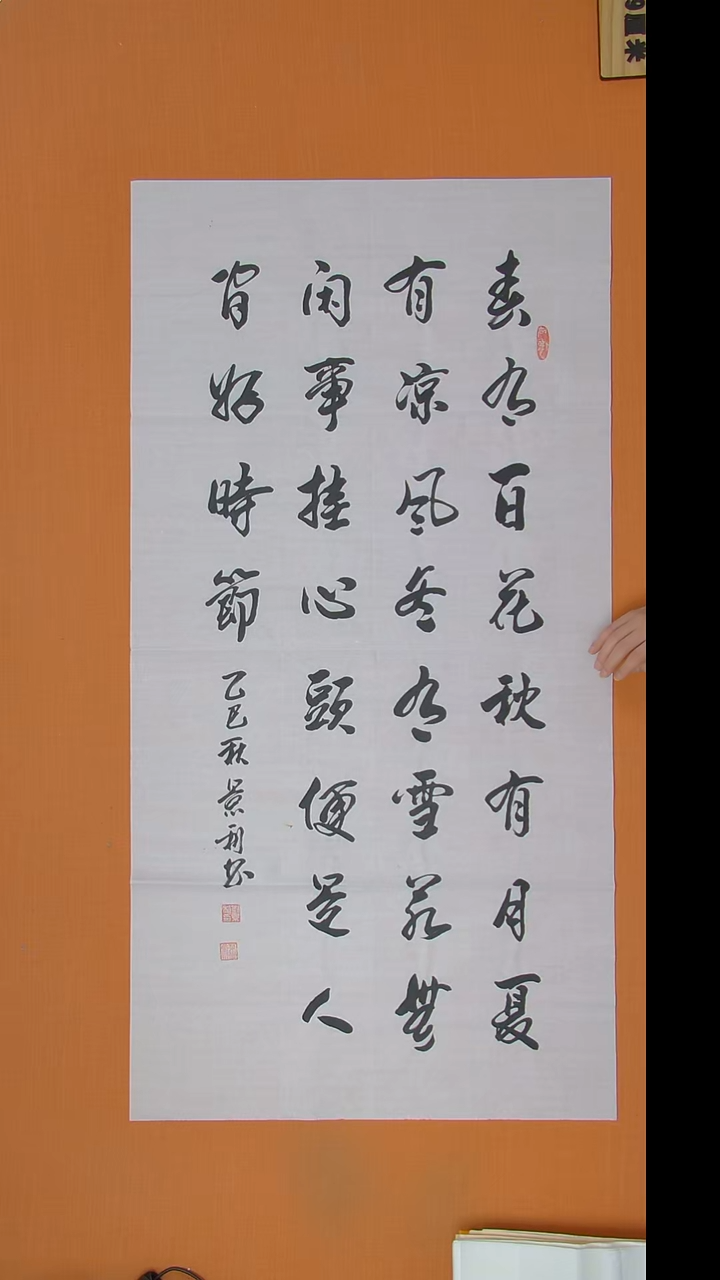 春有百花秋有月夏
有凉风冬有雪若無
闲事挂心頭便是人
间好時節
乙巳秋景利书
厘米